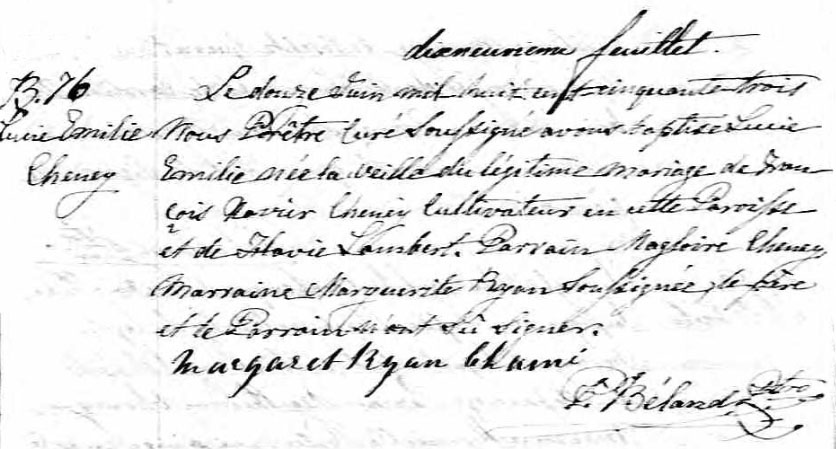 dixneuvieme feuillet.
B. 76
Lucie Emilie
Cheney
Le douze Juin mil huit cent cinquante trois
Nous Prêtre Curé Soussigné avons baptisé Lucie
Emilie née la veille du légitime mariage de Fran
çois Xavier Cheney Cultivateur en cette Paroisse
et de Flavie Lambert. Parrain Magloire Cheney,
Marraine Marguerite Ryan Soussignée, le père
et le Parrain n'ont sû signer.
Margaret Ryan
Béland Ptre